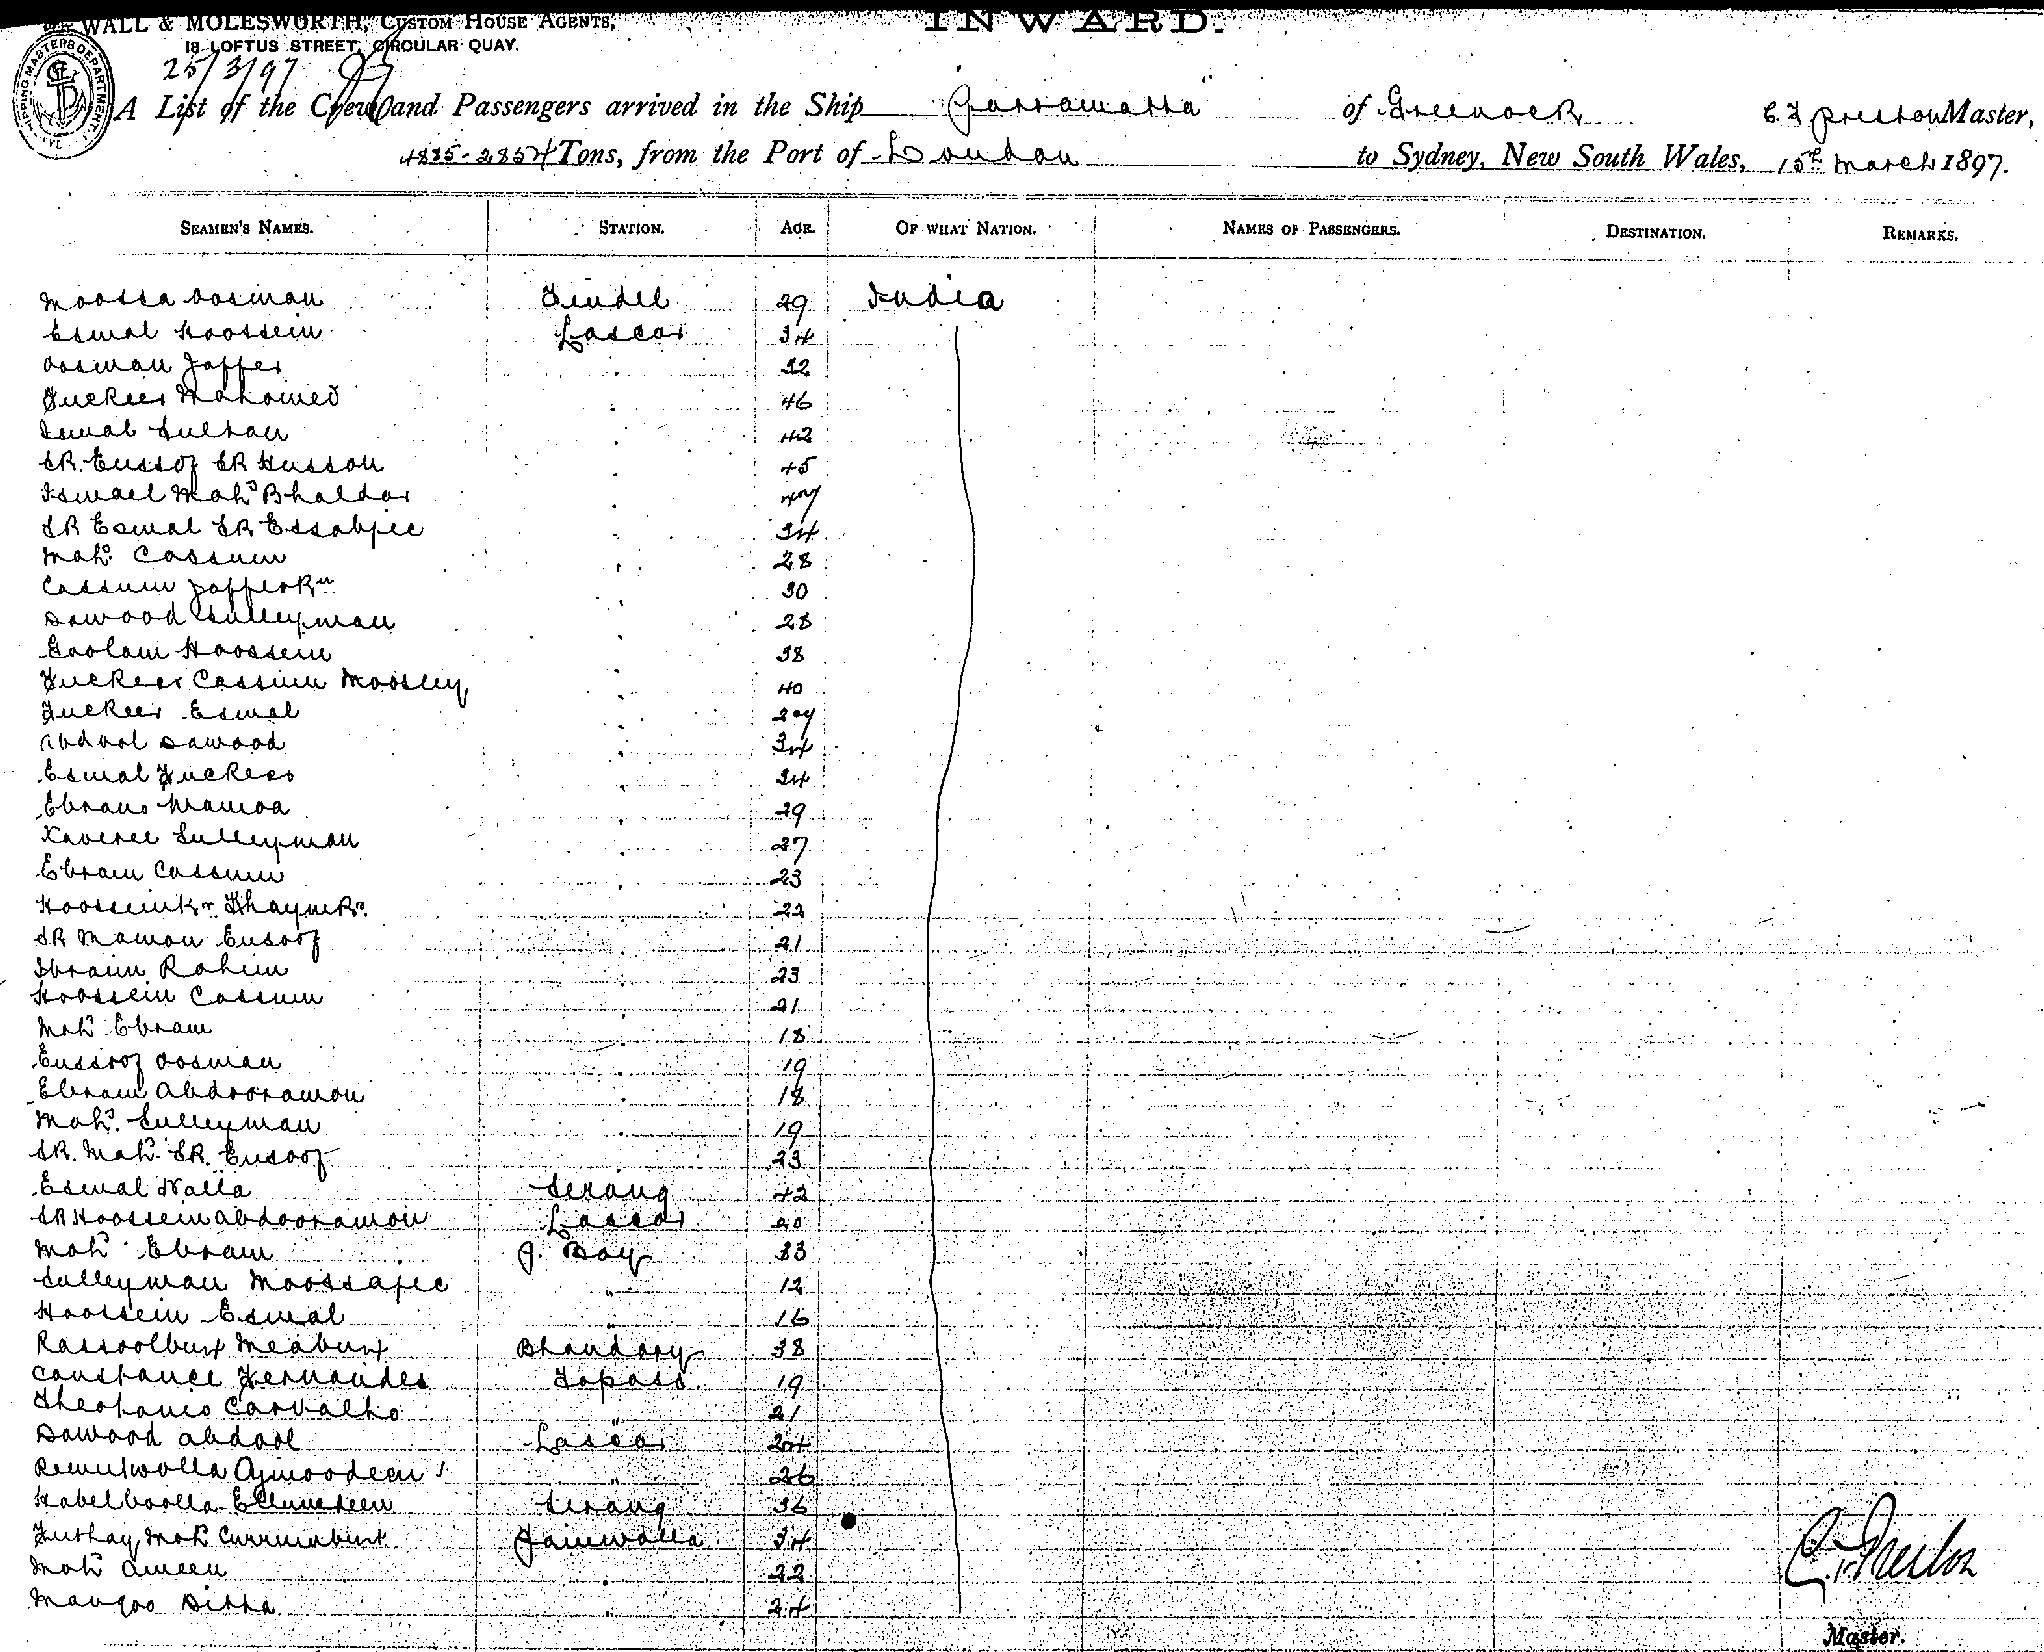 WALL & MOLESWORTH, CUSTOM HOUSE AGENTS,
INWARD.
18 LOFTUS STREET, CIRCULAR QUAY.
25/3/97
A List of the Crew and Passengers arrived in the Ship Parramatta of Greenock C. F Preston Master,
Tons, from the Port of London to Sydney, New South Wales, 15th March 1897.
SEAMEN'S NAMES. STATION. AGE. OF WHAT NATION. NAMES OF PASSENGERS. DESTINATION. REMARKS.
Moossa Oosman Tindel 29 India
Esmal Hoossein Lascar 34
Oosman Jaffer 32
Fuckeer Mahomed 46
Ismal Sultan 42
SK. Eussof SK Husson 45
Ismael Mahd Bhaldar 47
SK Esmal SK Essabjee 34
Mahd Cassum 28
Cassum JafferKn 30
Dawood Sulleyman 28
Goolam Hoossein 38
Fuckeer Cassim Moosley 40
Fuckeer Esmal 29
Abdool Dawood 34
Esmal Fuckeer 34
Ebram Mamoa 29
Kaveree Sulleyman 27
Ebram Cassum 23
22
SK Mamon Eusoof 21
Ibraim Rahim 23
Hoossein Cassum 21
Mahd Ebram 18
Eussoof Oosman 19
Ebram Abdooramon 18
Mahd. Sulleyman 19
SK. Mahd. SK. Eusoof 23
Esmal Nalla Serang 42
SK Hoossein Abdooramon Lascar 20
Mahd Ebram G. Boy 33
Sulleyman Moossajee " 12
Hoossein Esmal " 16
Rassoolbux Meabux Bhandary 38
Constance Fernandes Topass 19
Carvalho " 21
Dawood Abdool Lascar 24
Ajmoodeen " 26
Serang 36
Mahd Currimbux 34
Mahd Ameen 22
Mangoo Ditta " 24
C. F. Preston
Master.